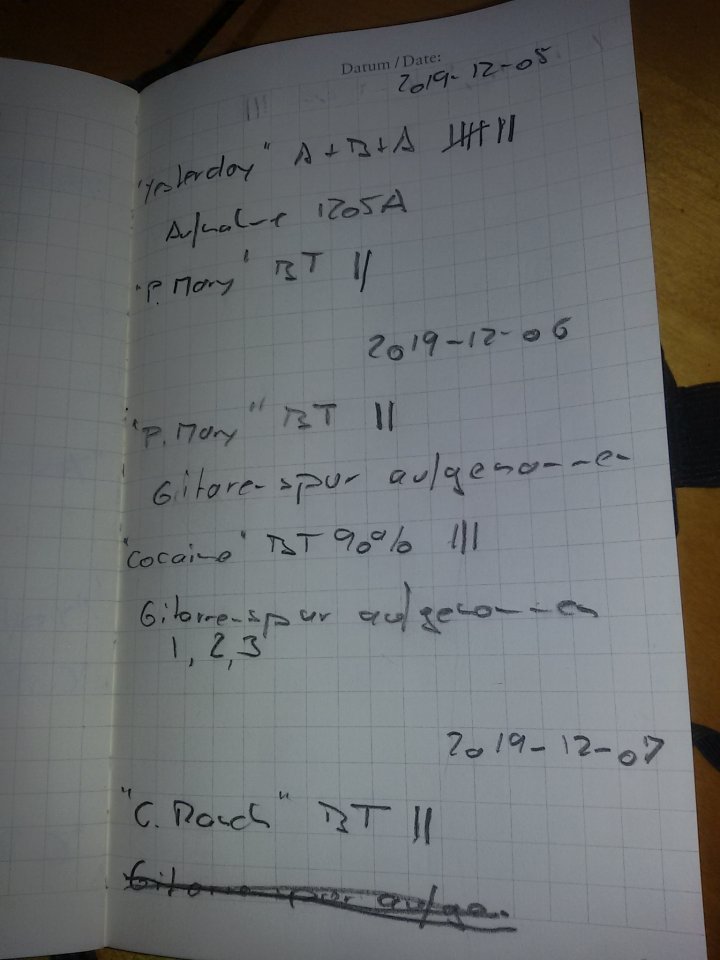 Datum / Date:
2019-12-05
"Yesterday" A+B+A 卌 ||
Aufnahme 1205A
"P. Mary" BT ||
2019-12-06
"P. Mary" BT ||
Gitarrenspur aufgenommen
"Cocaine" BT 90% |||
Gitarrenspur aufgenommen
1, 2, 3
2019-12-07
"C. Roach" BT ||
Gitarrenspur aufge.